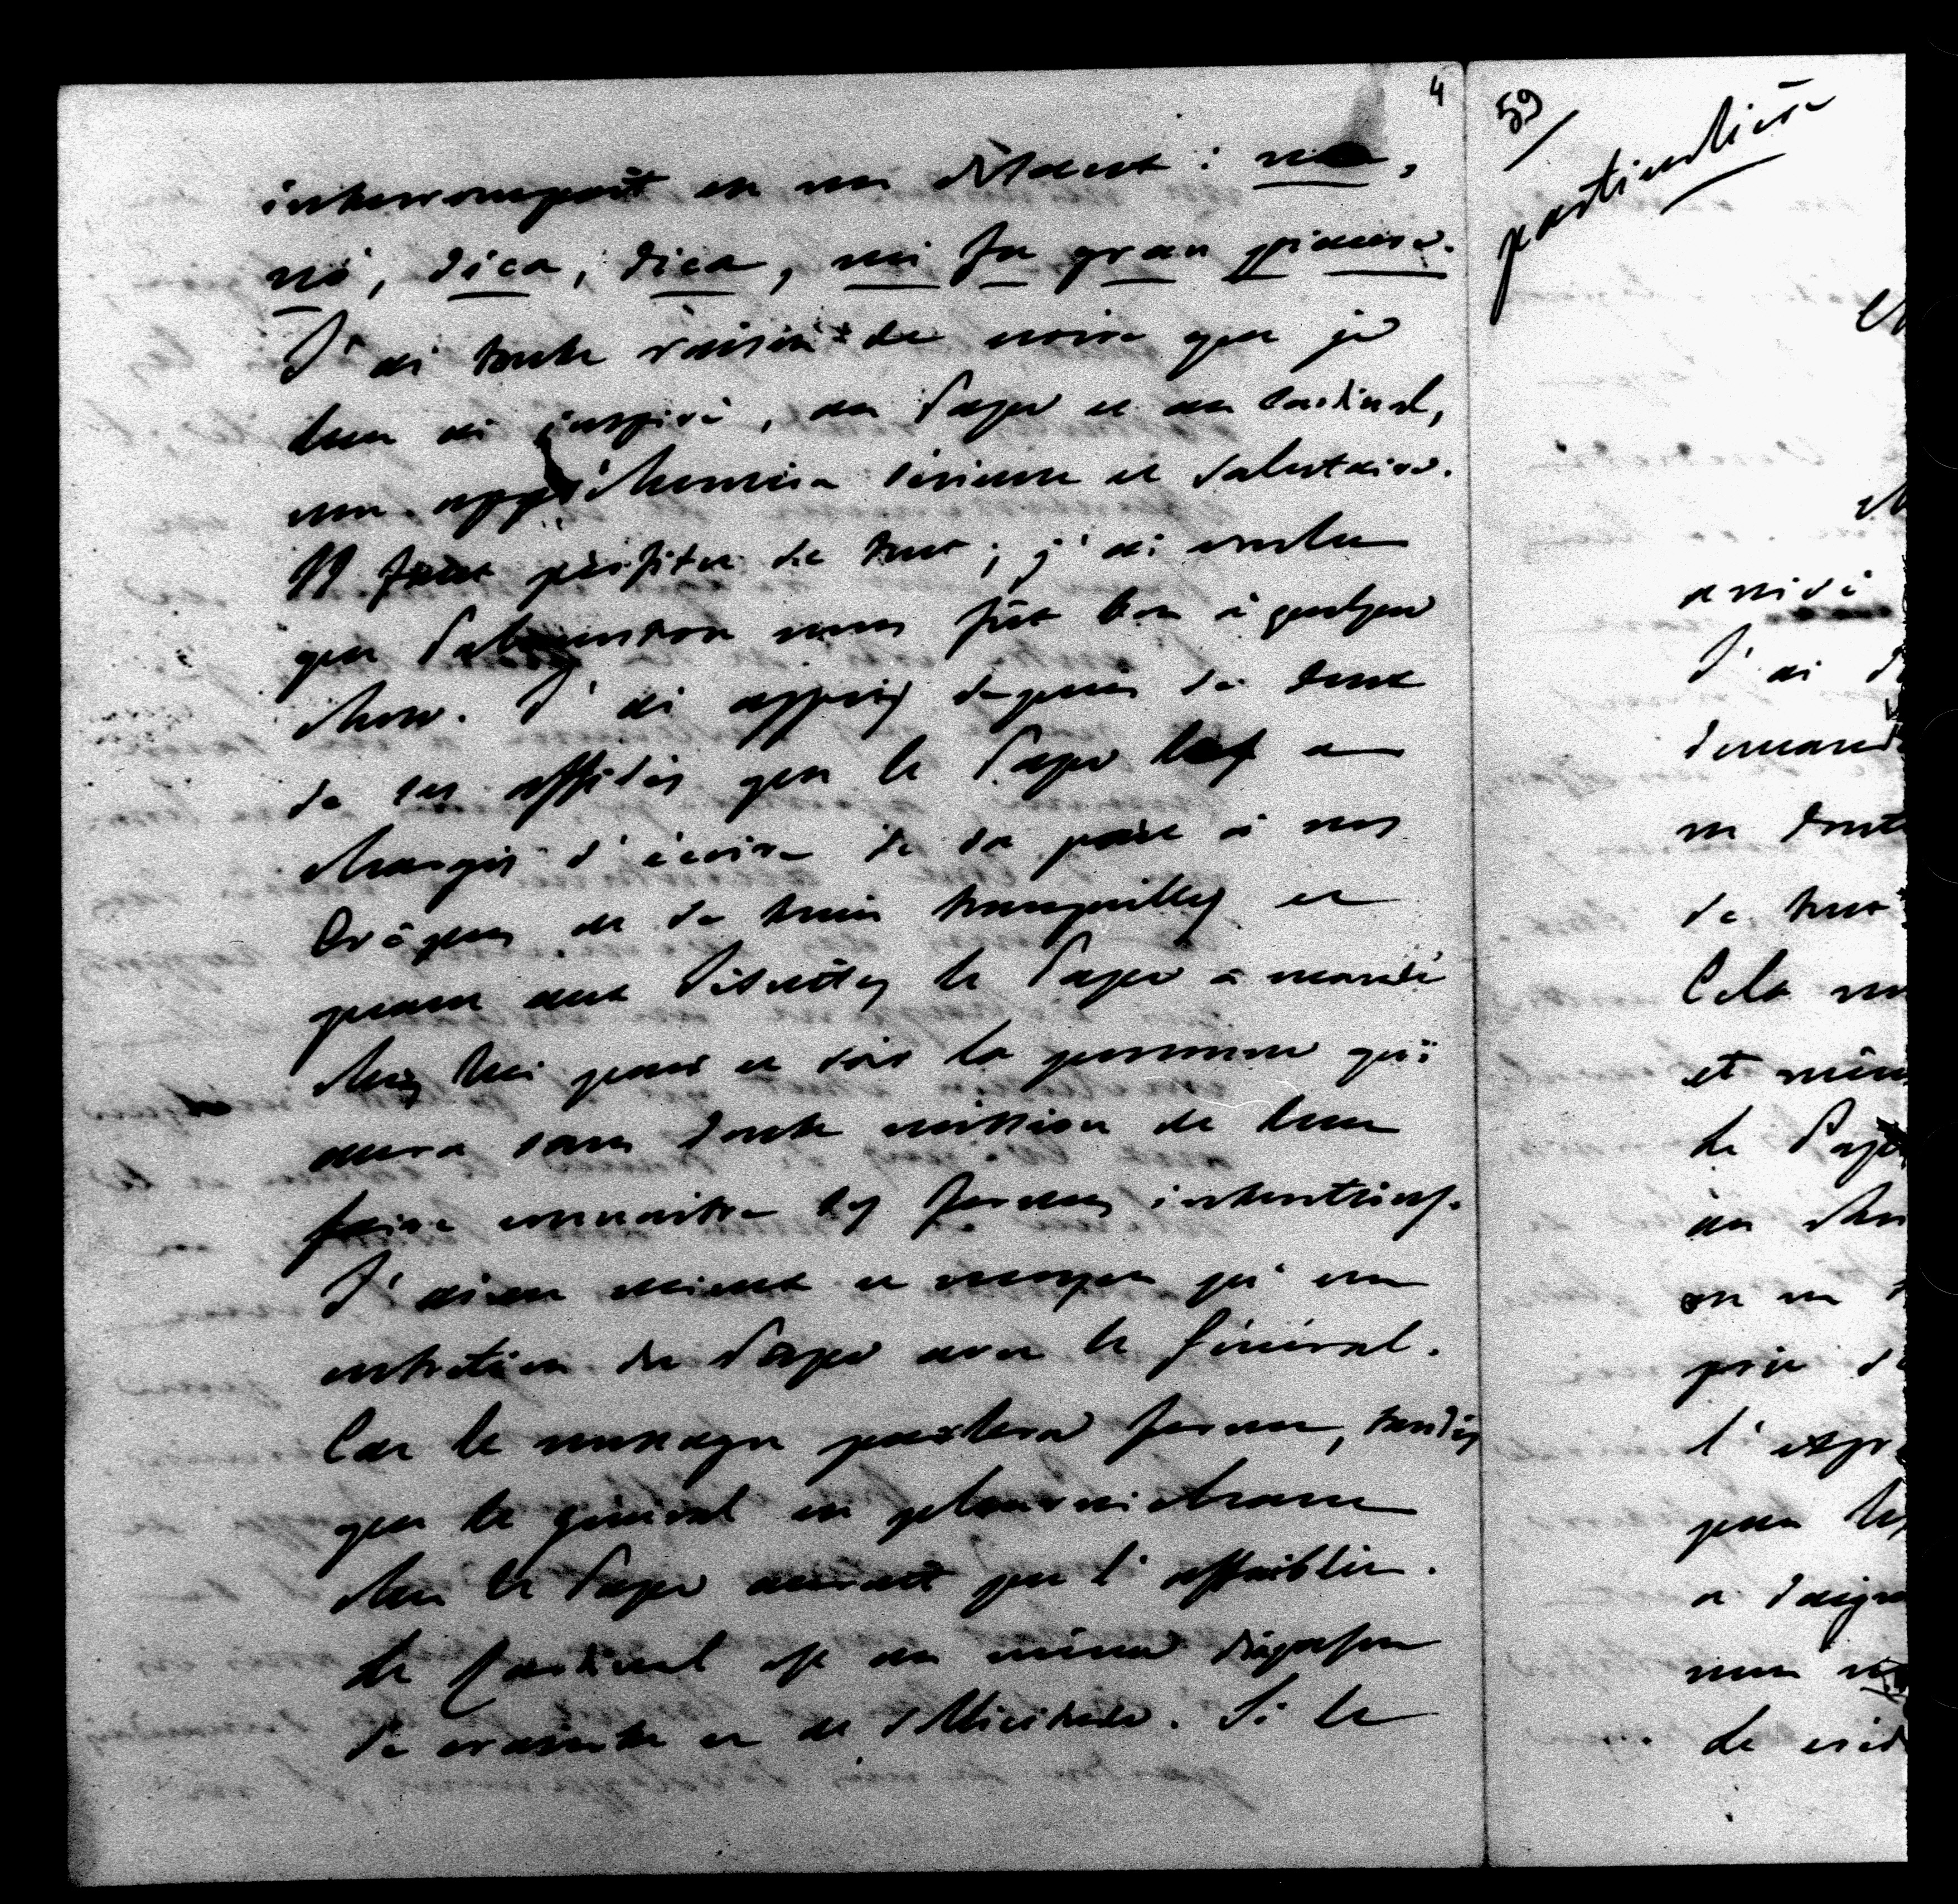 4
interrompait en me disant : no,
nò, dica, dica, mi fa gran piacere.
J'ai toute raison de croire que je
leur ai inspiré, au Pape et au Cardinal,
une appréhension sérieuse et salutaire.
Il faut profiter de tout ; j'ai voulu
que nous fût bon à quelque
chose. J'ai appris depuis de deux
de ses affidés que le Pape les a
chargés d'écrire de sa part à nos
Evêques de se tenir tranquilles et
quant aux Jésuites le Pape a mandé
chez lui pour ce soir la personne qui
aura sans doute mission de leur
faire connaître ses fermes intentions.
J'aime mieux ce message qu'un
entretien du Pape avec le Général.
Car le message parlera ferme, tandis
que le général en pleurnichant
chez le Pape aurait pu l'affaiblir.
Le Cardinal est au même diapason
de crainte et de sollicitude. Si le
59
particulière
arrivé
J'ai
de tout
Cela
et
le Pape
on me
prie
a daigné